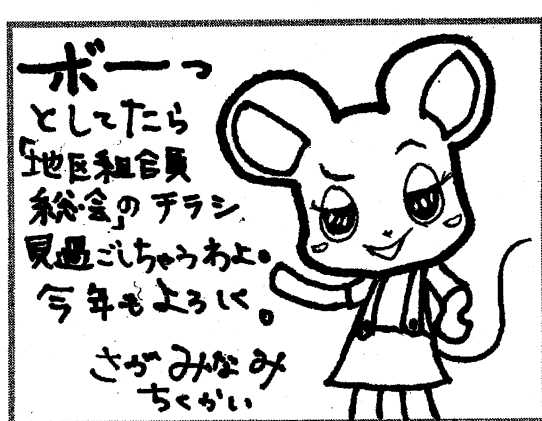 ボーっ
としてたら
「地区組合員
総会」のチラシ
見過ごしちゃうわよ。
今年もよろしく。
さがみなみ
ちくかい